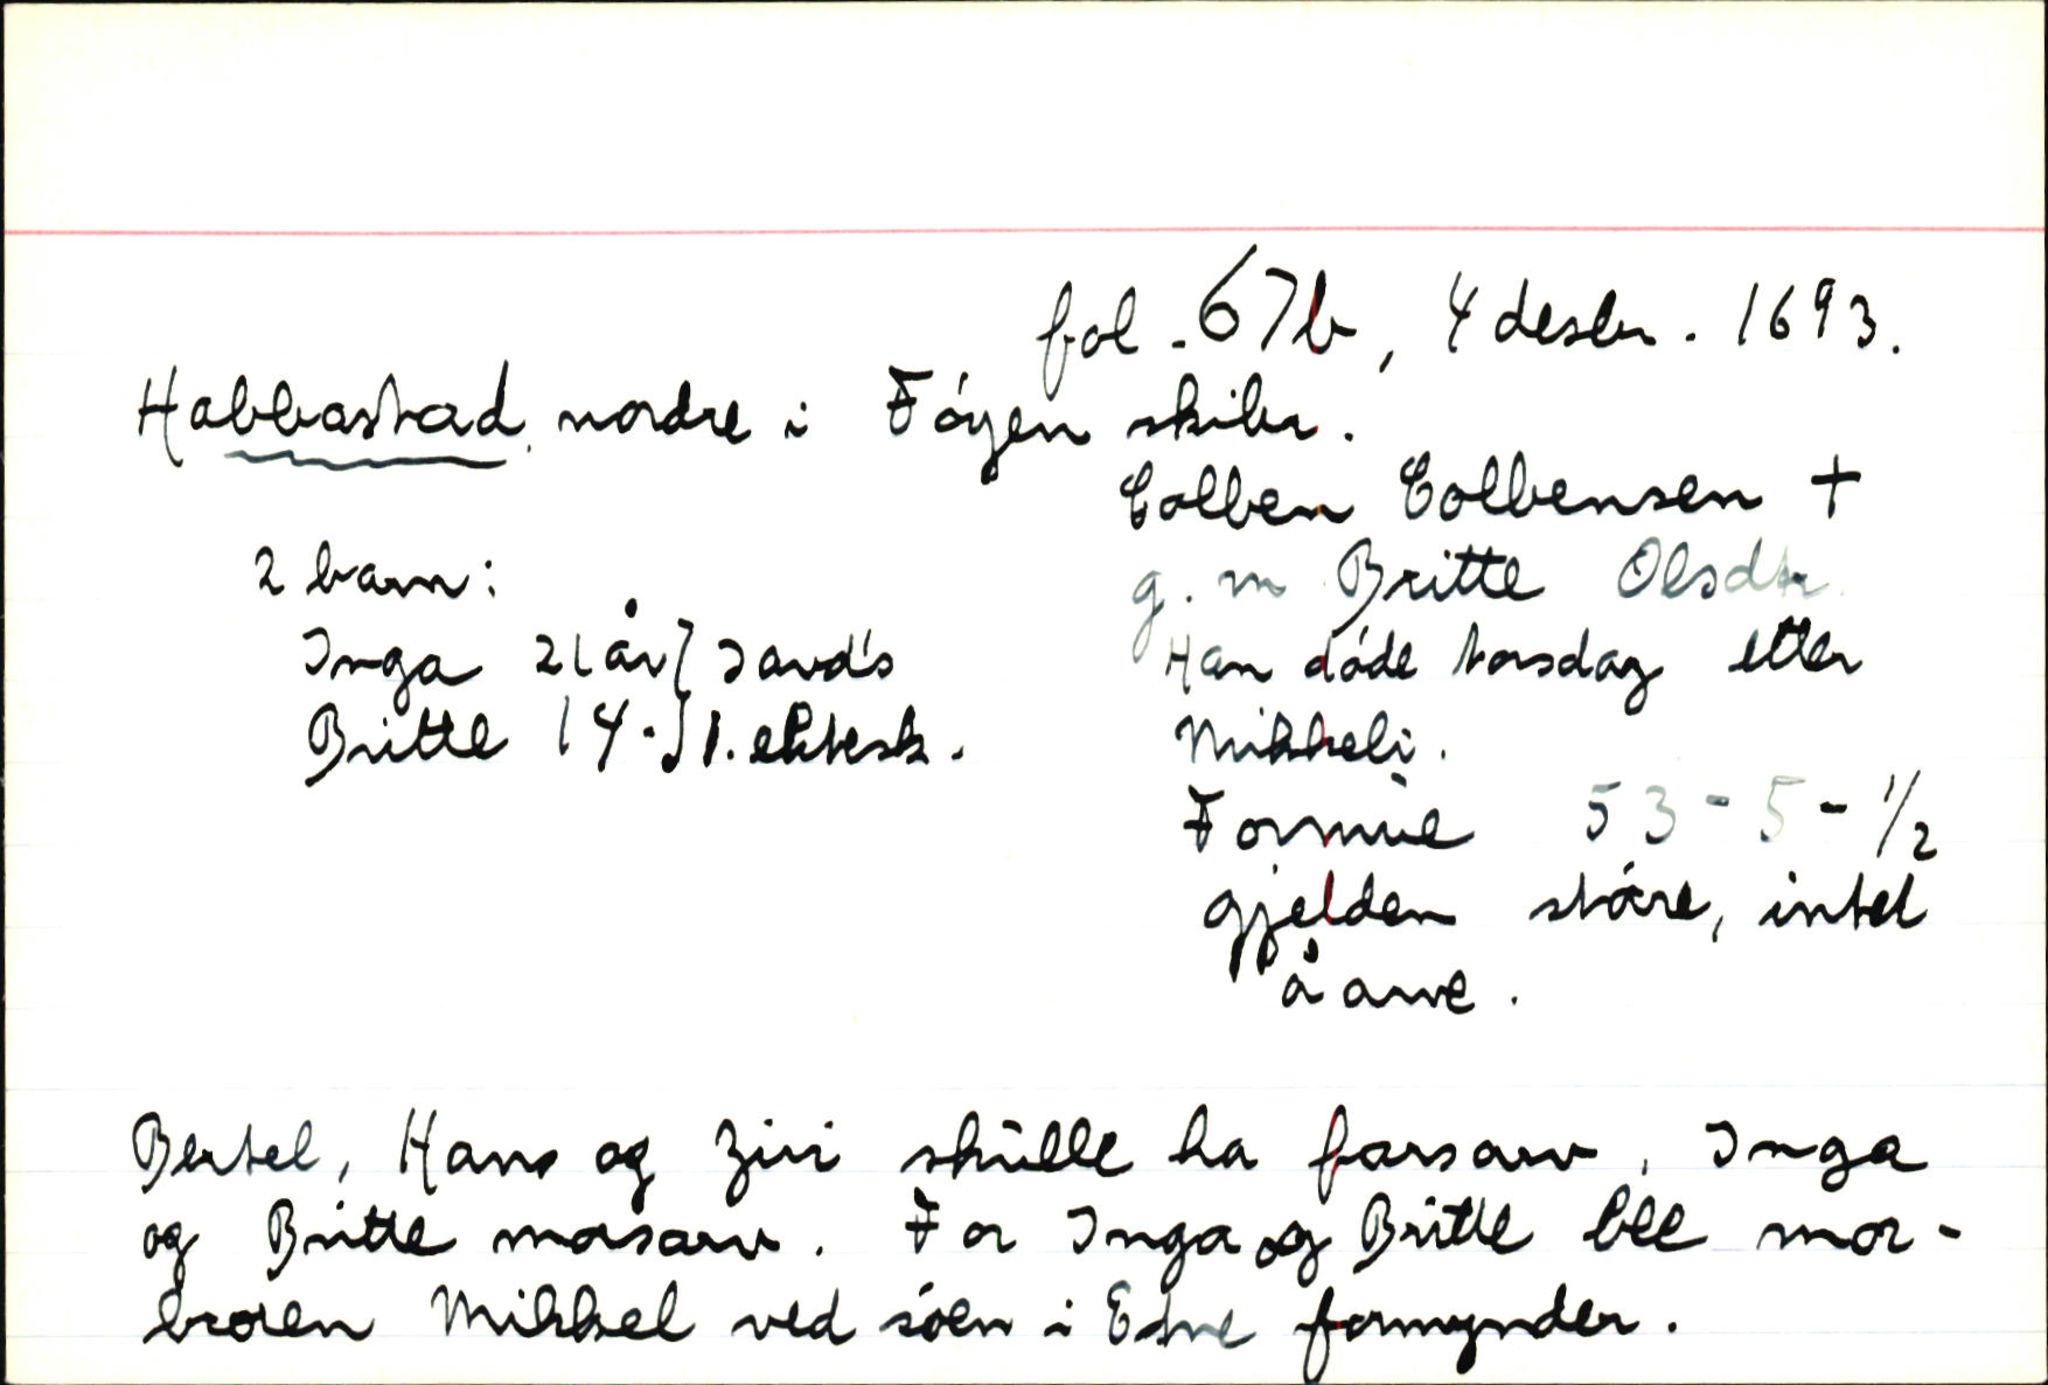 fol. 67b, 4 desbr. 1693.
Habbastad nordre i Føyen skibr.
Colben Colbensen +
g. m Britte Olsdtr.
Han døde torsdag etter
Mikkeli.
Formue 53 - 5 - 1/2
gjelden større, intet
å arve.
2 barn:
Inga 21 år } I avd's
Britte 14 - } 1. ektesk.
Bertel, Hans og Ziri skulle ha farsarv, Inga
og Britte morsarv. For Inga og Britte ble mor-
broren Mikkel ved søen i Edne formynder.